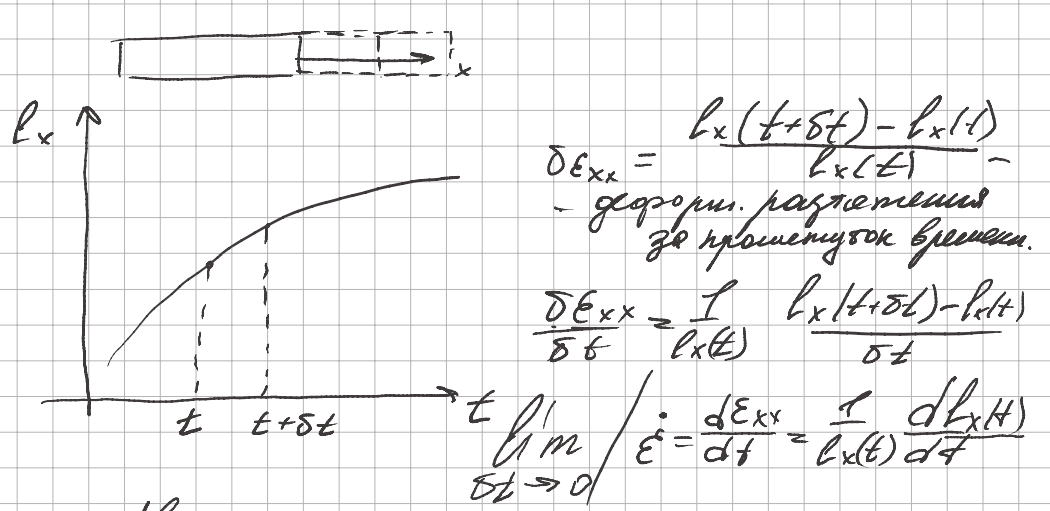 x
lₓ
δεₓₓ = (lₓ(t+δt) - lₓ(t)) / lₓ(t) -
- деформ. растяжения
за промежуток времени.
δεₓₓ / δt = 1 / lₓ(t) (lₓ(t+δt) - lₓ(t)) / δt
t t+δt t
lim δt → 0 / ε̇ = dεₓₓ / dt = 1 / lₓ(t) dlₓ(t) / dt